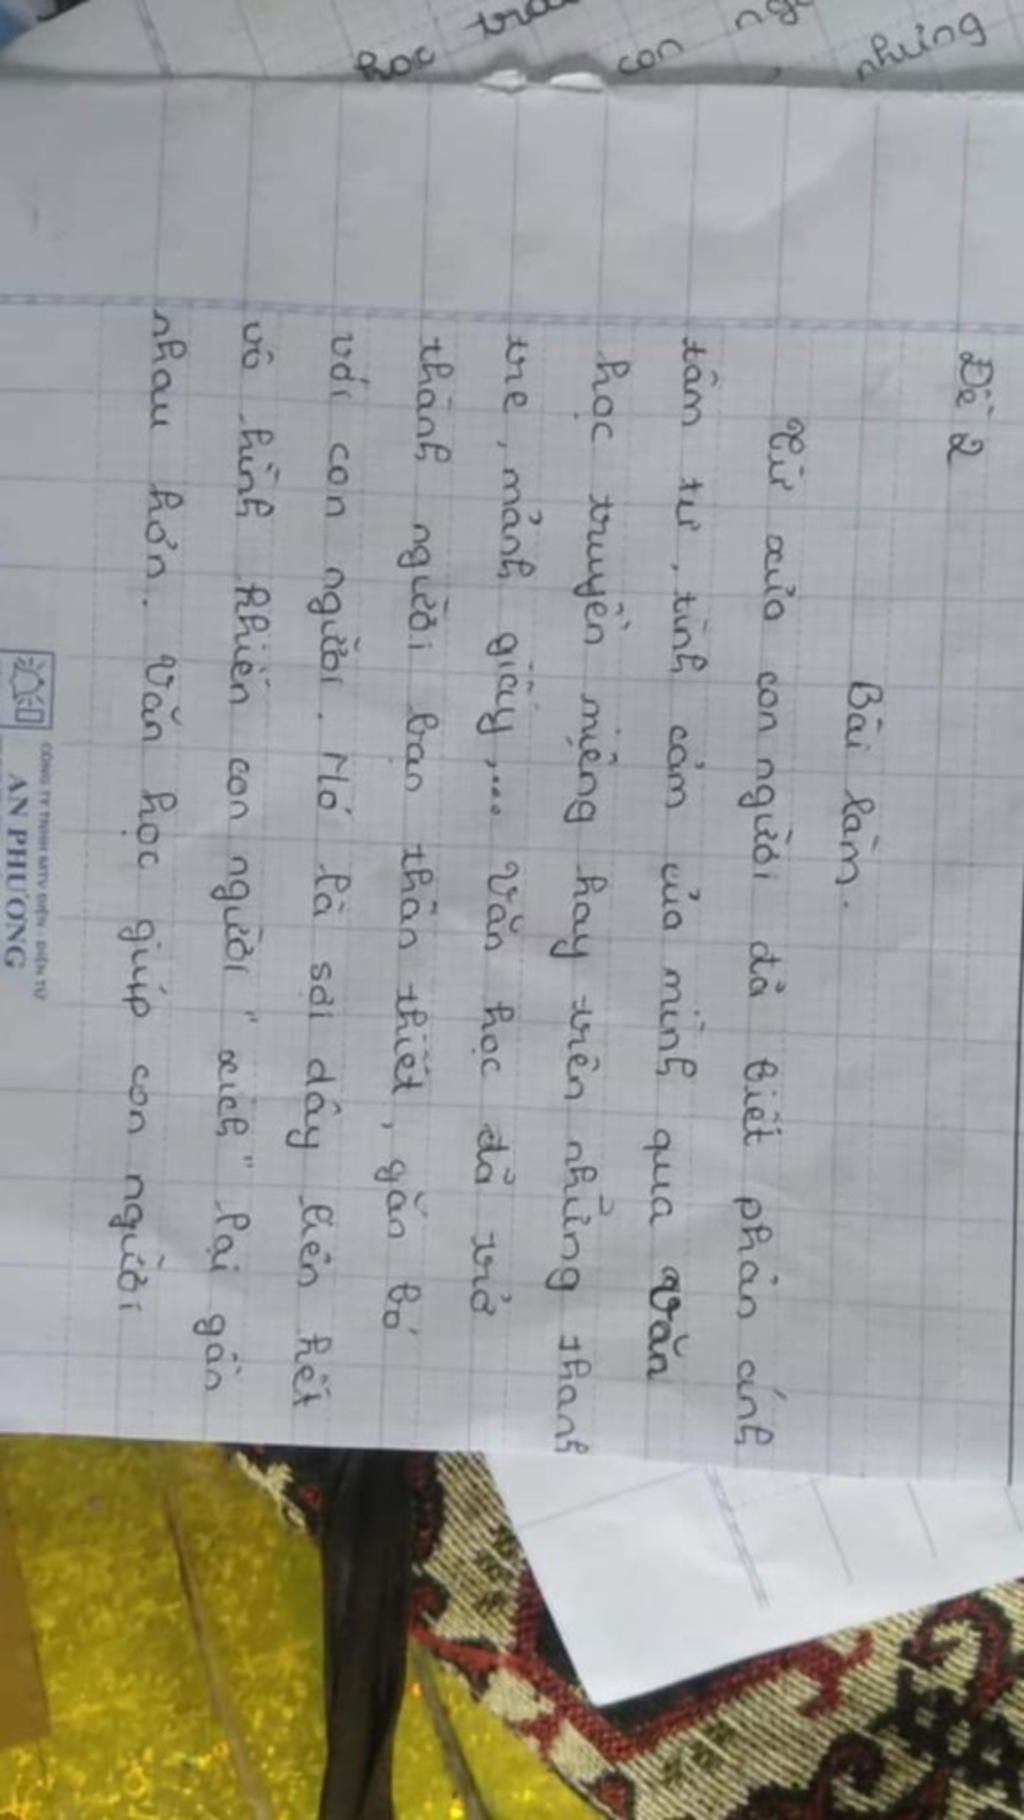 học
trở
con
những
Đề 2
Bài làm.
Từ xưa con người đã biết phản ánh
tâm tư, tình cảm của mình qua văn
học truyền miệng hay trên những thanh
tre, mảnh giấy,... Văn học đã trở
thành người bạn thân thiết, gắn bó
với con người. Nó là sợi dây liên kết
vô hình khiến con người "xích" lại gần
nhau hơn. Văn học giúp con người
CÔNG TY TNHH MTV ĐIỆN - ĐIỆN TỬ
AN PHƯƠNG